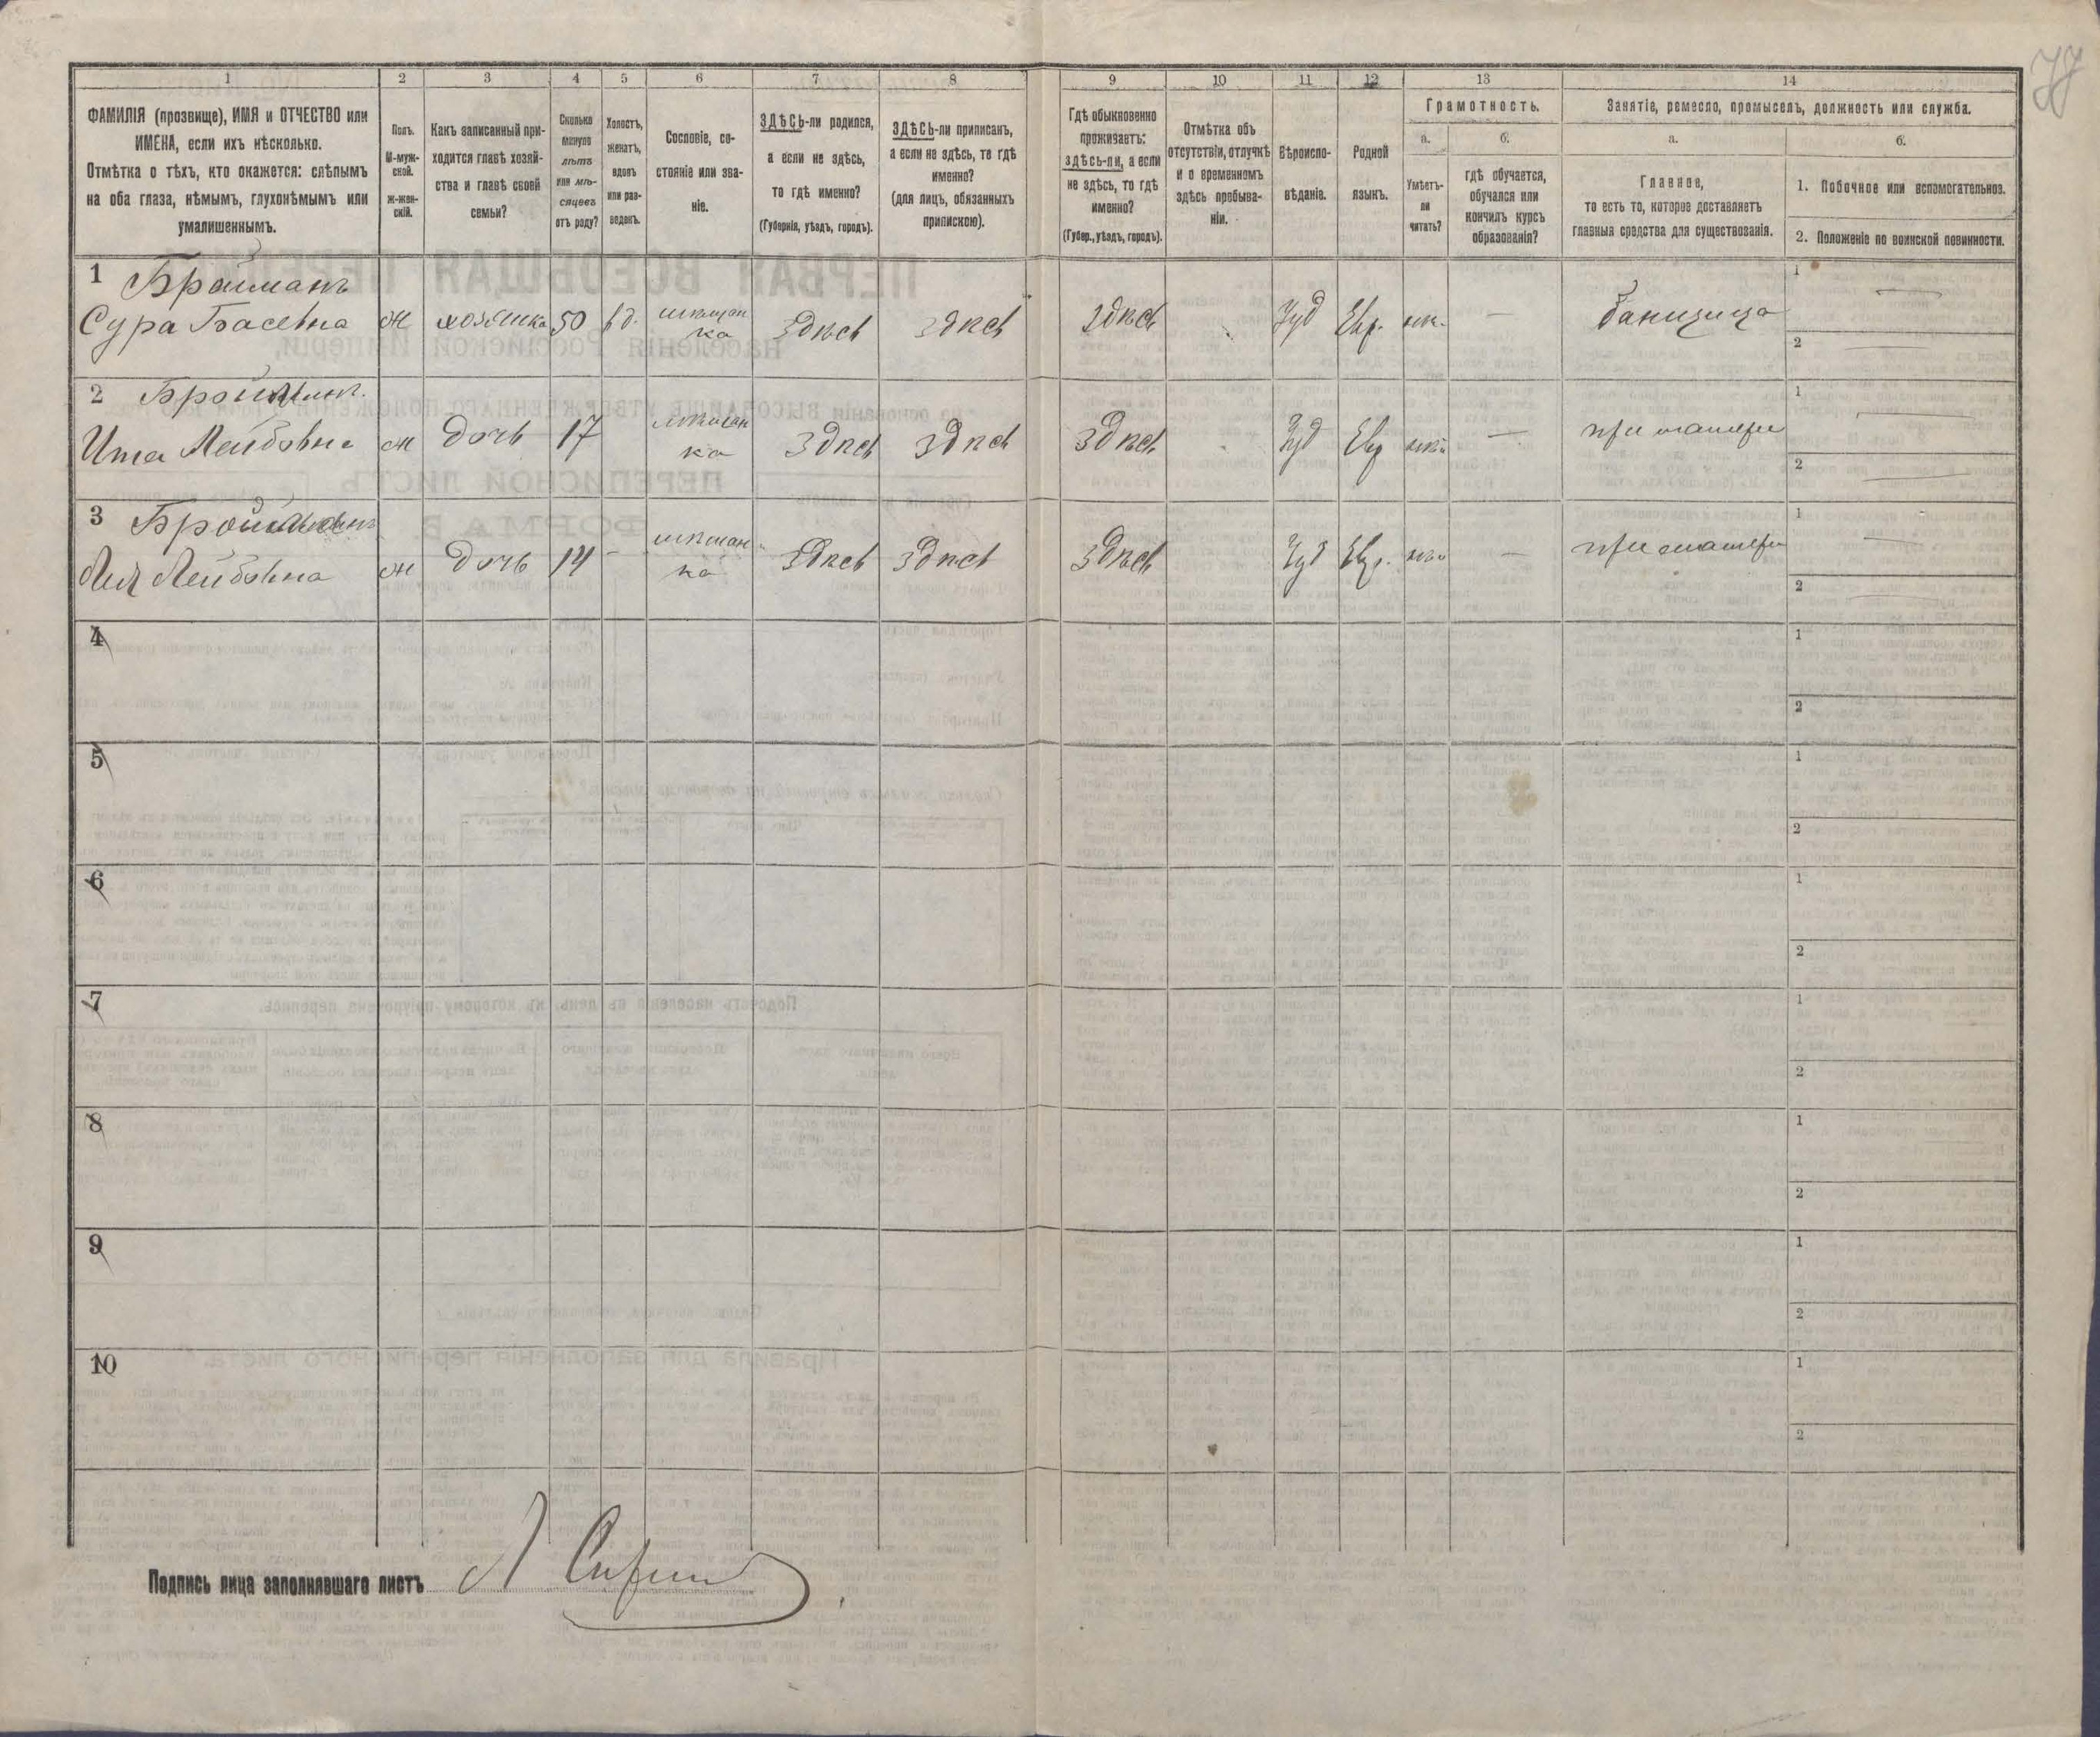 1
2
3
4
5
6
7
8
9
10
11
12
13
14
ФАМИЛІЯ (прозвище), ИМЯ и ОТЧЕСТВО или
ИМЕНА, если ихъ нѣсколько.
Отмѣтка о тѣхъ, кто окажется: слѣпымъ
на оба глаза, нѣмымъ, глухонѣмымъ или
умалишеннымъ.
Полъ.
М-муж-
ской.
Ж-жен-
скій.
Какъ записанный при-
ходится главѣ хозяй-
ства и главѣ своей
семьи?
Сколько
минуло
лѣтъ
или мѣ-
сяцевъ
отъ роду?
Холостъ,
женатъ,
вдовъ
или раз-
веденъ.
Сословіе, со-
стояніе или зва-
ніе.
ЗДѢСЬ-ли родился,
а если не здѣсь,
то гдѣ именно?
(Губернія, уѣздъ, городъ).
ЗДѢСЬ-ли приписанъ,
а если не здѣсь, то гдѣ
именно?
(для лицъ, обязанныхъ
припискою).
Гдѣ обыкновенно
проживаетъ:
здѣсь-ли, а если
не здѣсь, то гдѣ
именно?
(Губер., уѣздъ, городъ).
Отмѣтка объ
отсутствіи, отлучкѣ
и о временномъ
здѣсь пребыва-
ніи.
Вѣроиспо-
вѣданіе.
Родной
языкъ.
Грамотность.
а.
Умѣетъ-
ли
читать?
б.
гдѣ обучается,
обучался или
кончилъ курсъ
образованія?
Занятіе, ремесло, промыселъ, должность или служба.
а.
Главное,
то есть то, которое доставляетъ
главныя средства для существованія.
б.
1. Побочное или вспомогательное.
2. Положеніе по воинской повинности.
1 Бройманъ
Сура Басевна ж хозяйка 50 вд. мѣщан
ка здѣсь здѣсь здѣсь Іуд Евр. нѣ. — банщица
1 —
2 —
2 Бройманъ
Ита Лейбовна ж дочь 17 мѣщан
ка здѣсь здѣсь здѣсь Іуд Евр нѣ — при матери
1 —
2 —
3 Бройманъ
Лея Лейбовна ж дочь 14 — мѣщан
ка здѣсь здѣсь здѣсь Іуд Евр. нѣ — при матери
1 —
2 —
4
1
2
5
1
2
6
1
2
7
1
2
8
1
2
9
1
2
10
1
2
Подпись лица заполнявшаго листъ